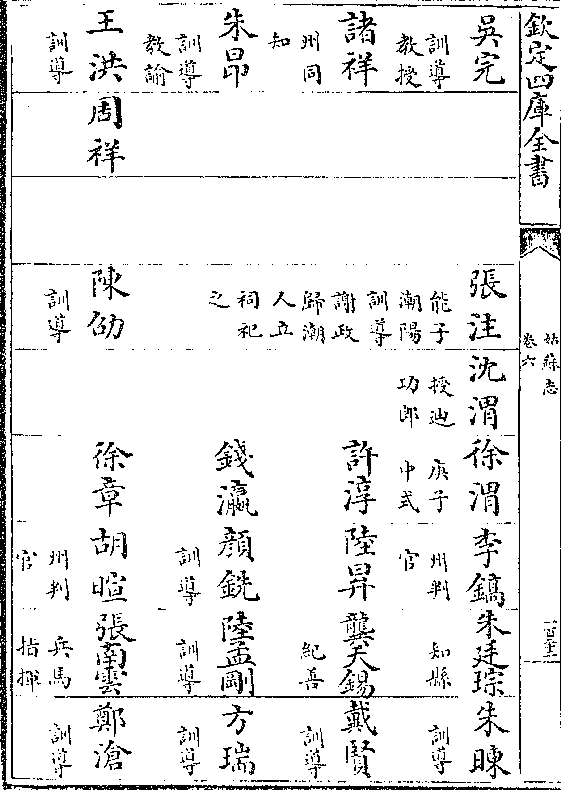 欽定四庫全書
姑蘇志
卷六
吳完 張注 沈渭 徐渭 李鎬 朱廷琮 朱暕
訓導 能子 授迪 庚子 州判 知縣 訓導
教授 潮陽 功郎 中式 官
訓導
諸祥 許淳 陸昇 龔天錫 戴賢
州同 謝政
歸潮 紀善 訓導
知 人立
祠祀
朱昂 之 錢瀛 顏銑 陸孟剛 方瑞
訓導 訓導 訓導 訓導
教諭
王洪 周祥 陳劭 徐章 胡暄 張南雲 鄭滄
訓導 訓導 州判 兵馬 訓導
官 指揮